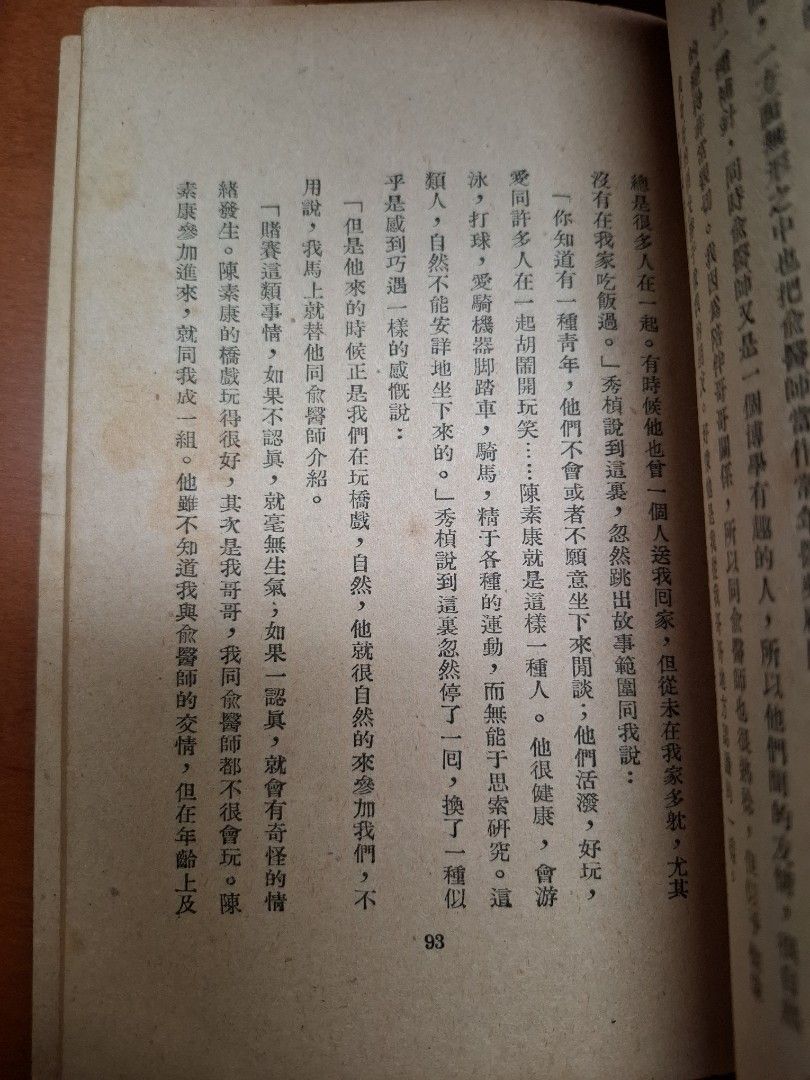 總是很多人在一起。有時候他也曾一個人送我囘家，但從未在我家多躭，尤其
沒有在我家吃飯過。」秀楨說到這裏，忽然跳出故事範圍同我說：
「你知道有一種靑年，他們不會或者不願意坐下來閒談；他們活潑，好玩，
愛同許多人在一起胡鬧開玩笑……陳素康就是這樣一種人。他很健康，會游
泳，打球，愛騎機器脚踏車，騎馬，精于各種的運動，而無能于思索硏究。這
類人，自然不能安詳地坐下來的。」秀楨說到這裏忽然停了一囘，換了一種似
乎是感到巧遇一樣的感慨說：
「但是他來的時候正是我們在玩橋戲，自然，他就很自然的來參加我們，不
用說，我馬上就替他同俞醫師介紹。
「賭賽這類事情，如果不認眞，就毫無生氣；如果一認眞，就會有奇怪的情
緖發生。陳素康的橋戲玩得很好，其次是我哥哥，我同俞醫師都不很會玩。陳
素康參加進來，就同我成一組。他雖不知道我與俞醫師的交情，但在年齡上及
93